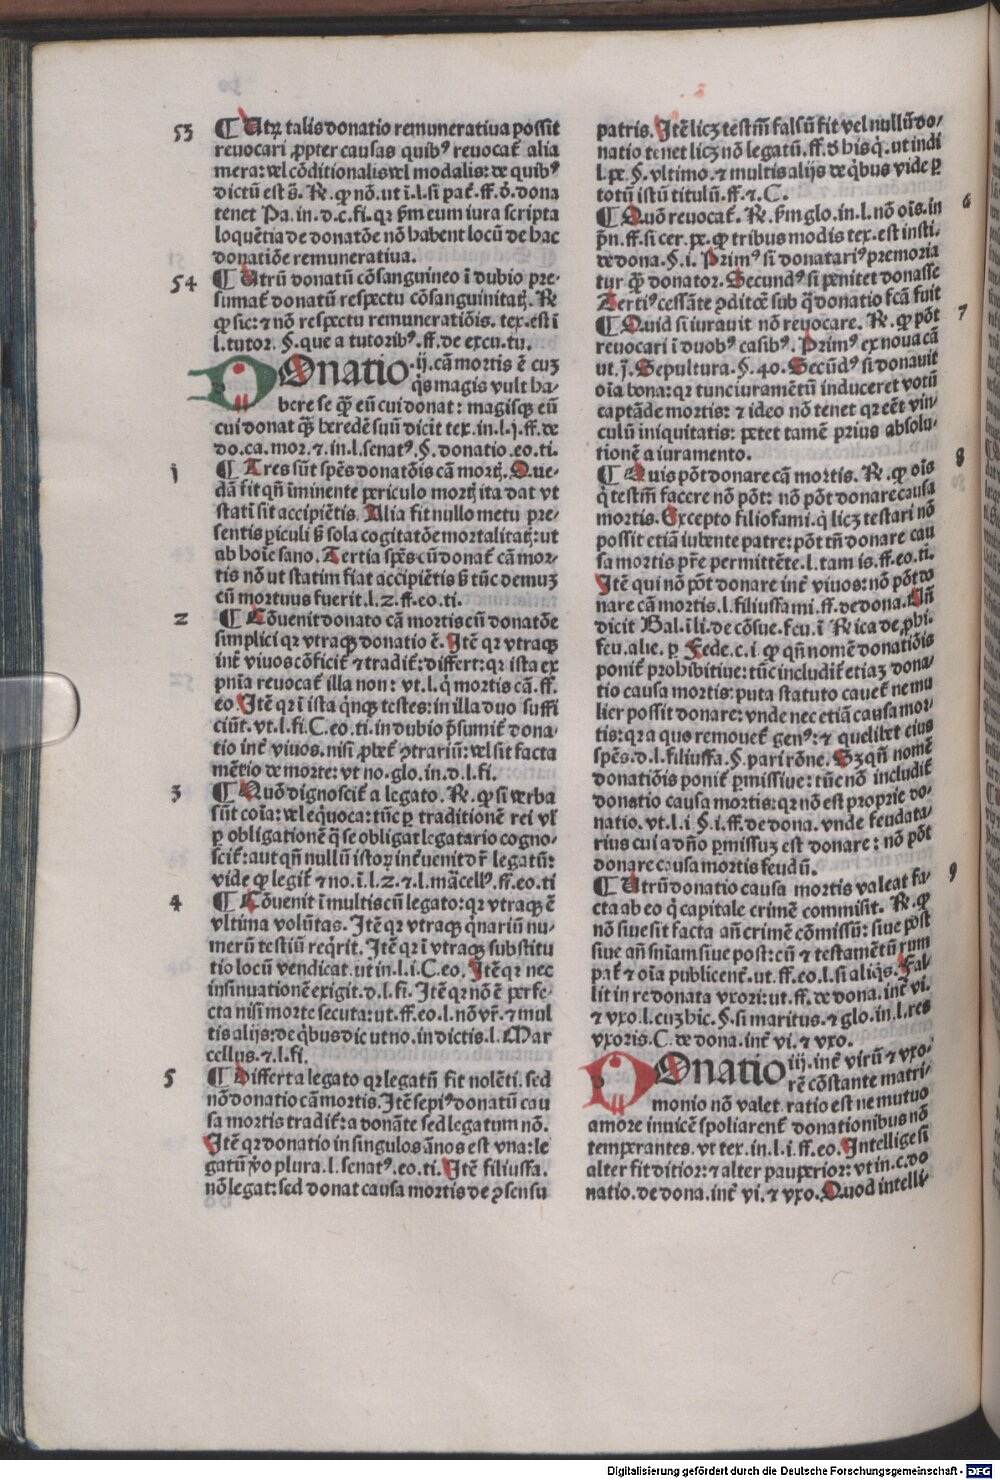 53
¶ Utrꝫ talis donatio remuneratiua possit
reuocari ꝓpter causas quibꝰ reuocat᷑ alia
mera: vel cōditionalis vel modalis: de quibꝰ
dictū est s̄. R. ꝙ nō. ut ī .l. si pat᷑. ff. ō. dona
tenet Pa. in. d. c. fi. qꝛ ẜm eum iura scripta
loquētia de donatōe nō habent locū de hac
donatiōe remuneratiua.
54
¶ Utrū donatū cōsanguineo ī dubio pre-
sumat᷑ donatū respectu cōsanguinitatꝭ. R
ꝙ sic: ⁊ nō respectu remuneratiōis. tex. est ī
l. tutor. §. que a tutoribꝰ. ff. de excu. tu.
DOnatio .ij. cā mortis ē cuꝫ
q̇s magis vult ha-
bere se q̄ꝫ eū cui donat: magisqꝫ eū
cui donat q̄ꝫ heredē suū dicit tex. in .l. j. ff. de
do. ca. mor. ⁊. in .l. senatꝰ. §. donatio. eo. ti.
j
¶ Tres sūt spēs donatōis cā mortꝭ. Que-
dā fit qn̄ īminente periculo mortꝭ ita dat vt
statī sit accipiētis. Alia fit nullo metu pre-
sentis ꝑiculi ꝫ sola cogitatōe mortalitatꝭ: ut
ab hoīe sano. Tertia spēs cū donat᷑ cā mor-
tis nō ut statim fiat accipiētis ꝫ tūc demuꝫ
cū mortuus fuerit. l. 2. ff. eo. ti.
2
¶ Cōuenit donato cā mortis cū donatōe
simplici qꝛ vtraqꝫ donatio ē. Itē qꝛ vtraqꝫ
int᷑ viuos cōficit᷑ ⁊ tradit᷑: differt: qꝛ ista ex
pn̄ia reuocat᷑ illa non: vt. l. q̇ mortis cā. ff.
eo. Itē qꝛ ī ista q̇nqꝫ testes: in illa duo suffi
ciūt. vt. l. fi. C. eo. ti. in dubio p̄sumit᷑ dona-
tio int᷑ viuos. nisi ꝓbet᷑ ꝯtrariū: vel sit facta
mētio de morte: vt no. glo. in. d. l. fi.
3
¶ Quō dignoscit᷑ a legato. R. ꝙ si verba
sūt coīa: vel equoca: tūc ꝑ traditionē rei vl᷑
ꝑ obligationē q̄ se obligat legatario cogno-
scit᷑: aut qn̄ nullū istoꝝ int᷑uenit dr̄ legatū:
vide ꝙ legit᷑ ⁊ no. ī .l. 2. ⁊ .l. mācellꝰ. ff. eo. ti
4
¶ Cōuenit ī multis cū legato: qꝛ vtraqꝫ ē
vltima volūtas. Itē qꝛ vtraqꝫ q̇nariū nu-
merū testiū req̇rit. Itē qꝛ ī vtraqꝫ substitu
tio locū vendicat. ut in .l. i. C. eo. Itē qꝛ nec
insinuationē exigit. d. l. fi. Itē qꝛ nō ē perfe-
cta nisi morte secuta: ut. ff. eo. l. nō vr̄. ⁊ mul
tis alijs: de q̇bus dic ut no. in dictis. l. Mar
cellus. ⁊. l. fi.
5
¶ Differt a legato qꝛ legatū fit nolēti. sed
nō donatio cā mortis. Itē sepiꝰ donatū cau
sa mortis tradit᷑: a donāte sed legatum nō.
Itē qꝛ donatio in singulos ānos est vna: le
gatū v̊o plura. l. senatꝰ. eo. ti. Itē filiusfa.
nō legat: sed donat causa mortis de ꝯsensu
patris. Itē licꝫ testm̄ falsū sit vel nullū do-
natio tenet licꝫ nō legatū. ff. ō his q̇. ut indi
l. pe. §. vltimo. ⁊ multis alijs de q̇bus vide ꝑ
totū istū titulū. ff. ⁊. C.
6
¶ Quō reuocat᷑. R. ẜm glo. in. l. nō oīs. in
pn̄. ff. si cer. pe. ꝙ tribus modis tex. est insti-
de dona. §. i. Primꝰ si donatariꝰ premoria
tur q̄ꝫ donator. Secundꝰ si penitet donasse
Tertiꝰ cessāte ꝯditōe sub q̄ donatio fcā fuit
7
¶ Quid si iurauit nō reuocare. R. ꝙ pōt
reuocari ī duobꝰ casibꝰ. Primꝰ ex noua cā
ut. j. Sepultura. §. 40. Secūdꝰ si donauit
oīa bona: qꝛ tunc iuramētū induceret votū
captāde mortis: ⁊ ideo nō tenet qꝛ eēt vin-
culū iniquitatis: petet tamē prius absolu-
tionē a iuramento.
8
¶ Quis pōt donare cā mortis. R. ꝙ oīs
q̇ testm̄ facere nō pōt: nō pōt donare causa
mortis. Excepto filiofami. q̇ licꝫ testari nō
possit etiā iubente patre: pōt tn̄ donare cau
sa mortis pr̄e permittēte. l. tam is. ff. eo. ti.
Itē qui nō pōt donare int᷑ viuos: nō pōt do
nare cā mortis. l. filiusfami. ff. de dona. Un̄
dicit Bal. ī li. de cōsue. feu. ī Rica de ꝓhi.
feu. alie. ꝑ Fede. c. i. ꝙ qn̄ nomē donatiōis
ponit᷑ prohibitiue: tūc includit᷑ etiaꝫ dona-
tio causa mortis: puta statuto cauet᷑ ne mu
lier possit donare: vnde nec etiā causa mor-
tis: qꝛ a quo remouet᷑ genꝰ: ⁊ quelibet eius
spēs. d. l. filiusfa. §. pari rōne. Sꝫ qn̄ nomē
donatiōis ponit᷑ ꝑmissiue: tūc nō includit᷑
donatio causa mortis: qꝛ nō est proprie do-
natio. vt. l. i §. i. ff. de dona. vnde feudata-
rius cui a dn̄o ꝑmissuꝫ est donare: nō pōt
donare causa mortis feudū.
9
¶ Utrū donatio causa mortis valeat fa-
cta ab eo q̇ capitale crimē commisit. R. ꝙ
nō siue sit facta an̄ crimē cōmissū: siue post
siue an̄ sn̄iam siue post: cū ⁊ testamētū rum
pat᷑ ⁊ oīa publicent᷑. ut. ff. eo. l. si aliq̇s. Fal-
lit in re donata vxori: ut. ff. de dona. int᷑ vi.
⁊ vxo. l. cuꝫ hic. §. si maritus. ⁊ glo. in. l. res
vxoris. C. de dona. int᷑ vi. ⁊ vxo.
DOnatio iij. int᷑ virū ⁊ vxo-
rē cōstante matri-
monio nō valet. ratio est ne mutuo
amore inuicē spoliarent᷑ donationibus nō
temperantes. vt tex. in. l. i. ff. eo. Intellige si
alter fit ditior: ⁊ alter pauperior: vt in. c. do
natio. de dona. int᷑ vi. ⁊ vxo. Quod intelli-
Digitalisierung gefördert durch die Deutsche Forschungsgemeinschaft - DFG